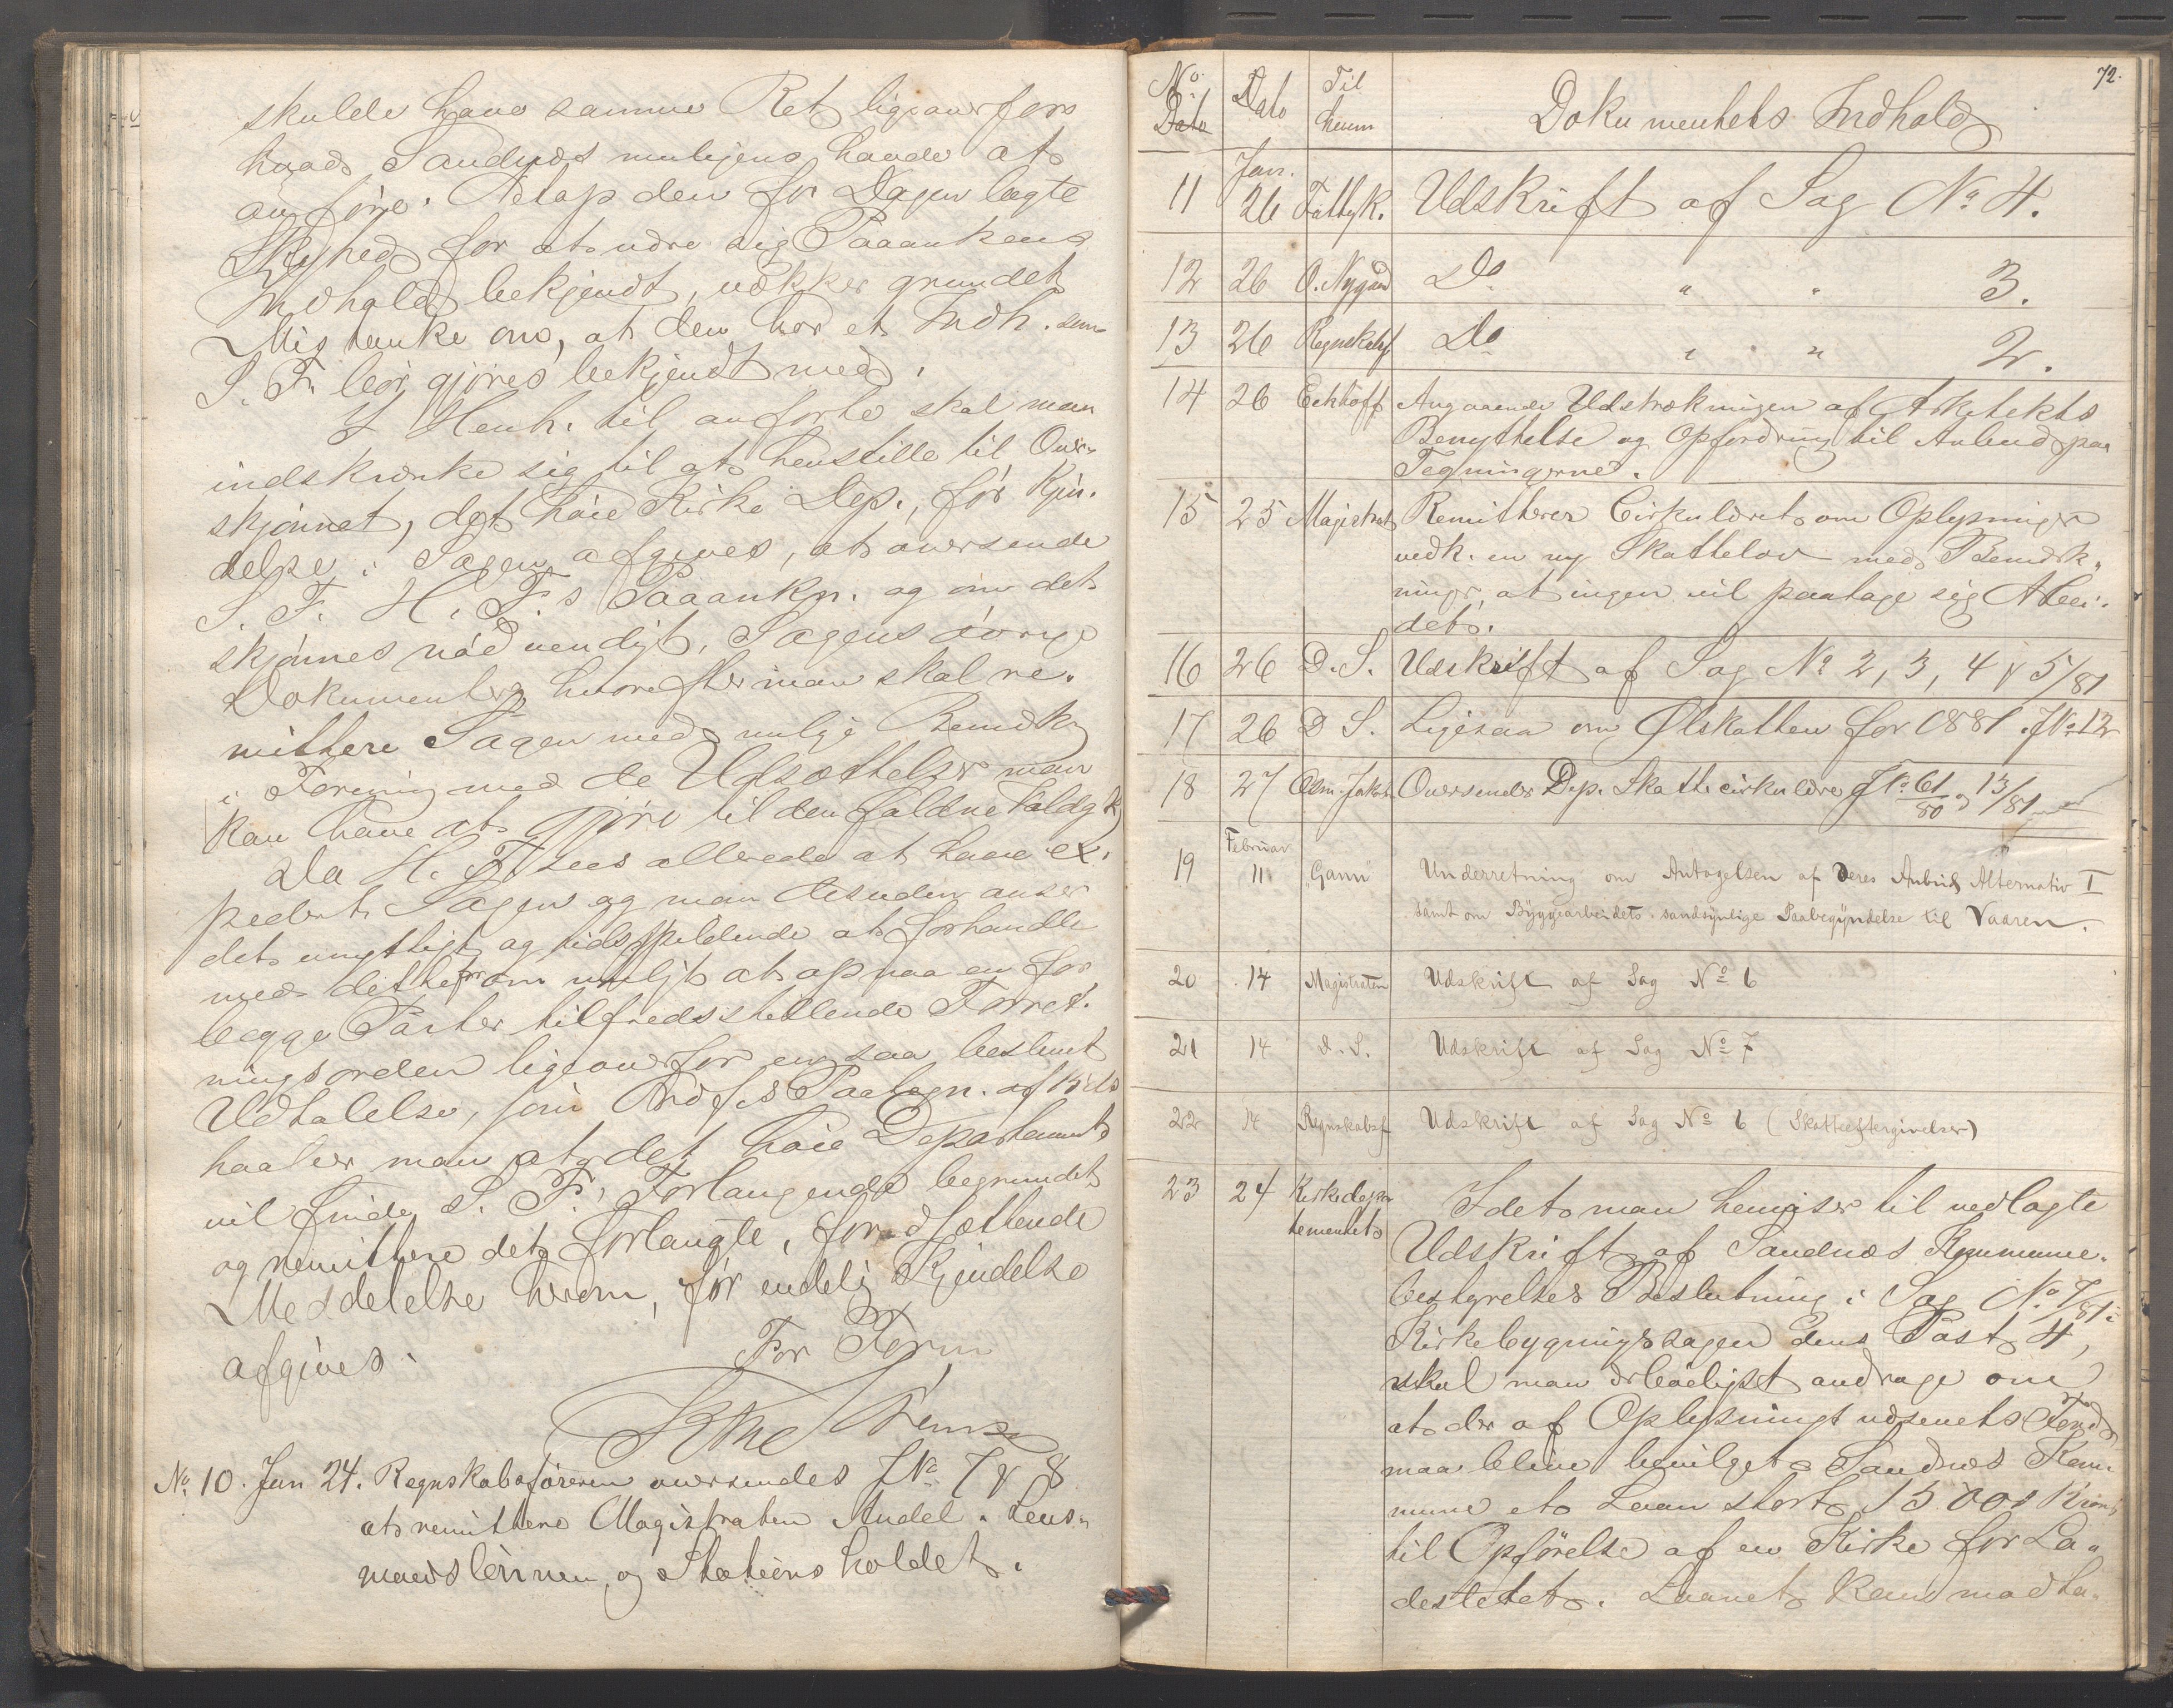 skulde have samme Ret ligeoverfor
hvad Sandnæs muligens havde at
anføre. Netop den for Dagen lagte
Skyhed for at være sig Paaankens
Indhold bekjendt, vækker grundet
Mistanke om, at den har et Indh. som
S. F. bør gjøres bekjendt med.
I Henh. til anførte skal man
indskrænke sig til at henstille til Over-
skjønnet, det høie Kirke Dep., før Kjen-
delse i Sagen afgives, at oversende
S. F. H. F.s Paaankn. og om det
skjønnes nødvendigt, Sagens øvrige
Dokumenter, hvorefter man skal re-
mittere Sagen med mulge Bemærkn
i Forening med de Udsættelser man
kan have at gjøre til den faldne
Da H. F. sees allerede at have ex-
pedert Sagen og man desuden anser
det unyttigt og tidsspildende at forhandle
med dette om muligt at opnaa en for
begge Parter tilfredsstillende Forret-
ningsorden ligeoverfor en saa bestemt
Udtalelse, som Ordf.s Paategn. af 15 ds
haaber man at det høie Departement
vil finde S. F.s Forlangende begrundet
og remittere det forlangte, forudsættende
Meddelelse herom, før endelig Kjendelse
afgives.
For Form
No 10. Jan 24. Regnskabsføreren oversendes JNo 7 & 8
at remittere Magistraten Andel i Lens-
mandslønnen og Stationsholdet.
72.
No Dato Dato Til hvem Dokumentets Indhold
11 Jan. 26 Fattigk. Udskrift af Sag No 4.
12 26 O. Nygård Do " " 3.
13 26 Regnskabsf Do " " 2.
14 26 Eckhoff Angaaende Udstrækningen af Arkitekts
Benyttelse og Opfordring til Anbud paa
Tegningerne.
15 25 Magistrat Remitterer Cirkulæret om Oplysninger
vedk. en ny Skattelov med Bemærk-
ninger, at ingen vil paatage sig Arbei-
det.
16 26 D. S. Udskrift af Sag No 2, 3, 4 & 5/81
17 26 D S. Ligesaa om Ølskatten for 1881. JNo 12
18 27 Oversender Dep. Skattecirkulære JNo 61/80 og 13/81
19 Februar 11 Gann Underretning om Antagelsen af Deres Anbud Alternativ I
samt om Byggearbeidets sandsynlige Paabegyndelse til Vaaren.
20 14 Magistraten Udskrift af Sag No 6
21 14 D. S. Udskrift af Sag No 7
22 14 Regnskabsf Udskrift af Sag No 6 (Skatteeftergivelser)
23 24 Kirkedepar
tementet
Idet man henviser til vedlagte
Udskrift af Sandnæs Kommune-
bestyrelses Beslutning i Sag No 7/81:
Kirkebygningssagen dens Post 4,
skal man ærbødigst andrage om
at der af Oplysningsvæsenets Fond
maa blive bevilget Sandnæs Kom-
mune et Laan stort 15 000 Kroner
til Opførelse af en Kirke for La-
destedet. Laanet kan modta-